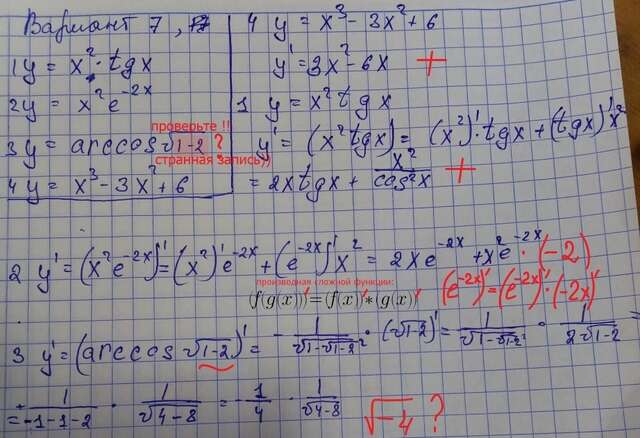 Вариант 7,
1 y = x² · tg x
2 y = x² e^-2x
проверьте !!
3 y = arccos √1-2 ?
странная запись))
4 y = x³ - 3x² + 6
4 y = x³ - 3x² + 6
y' = 3x² - 6x +
1 y = x² tg x
y' = (x² tg x)' = (x²)' · tg x + (tg x)' x²
= 2x tg x + x²/cos²x +
2 y' = (x² e^-2x)' = (x²)' e^-2x + (e^-2x)' x² = 2x e^-2x + x² e^-2x · (-2)
производная сложной функции:
(f(g(x)))' = (f(x))' * (g(x))'
(e^-2x)' = (e^-2x)' · (-2x)'
3 y' = (arccos √1-2)' = - 1/√1-√1-2² · (√1-2)' = 1/√1-√1-2² · 1/2√1-2 =
= 1/-1-1-2 · 1/√4-8 = - 1/4 · 1/√4-8
√-4 ?